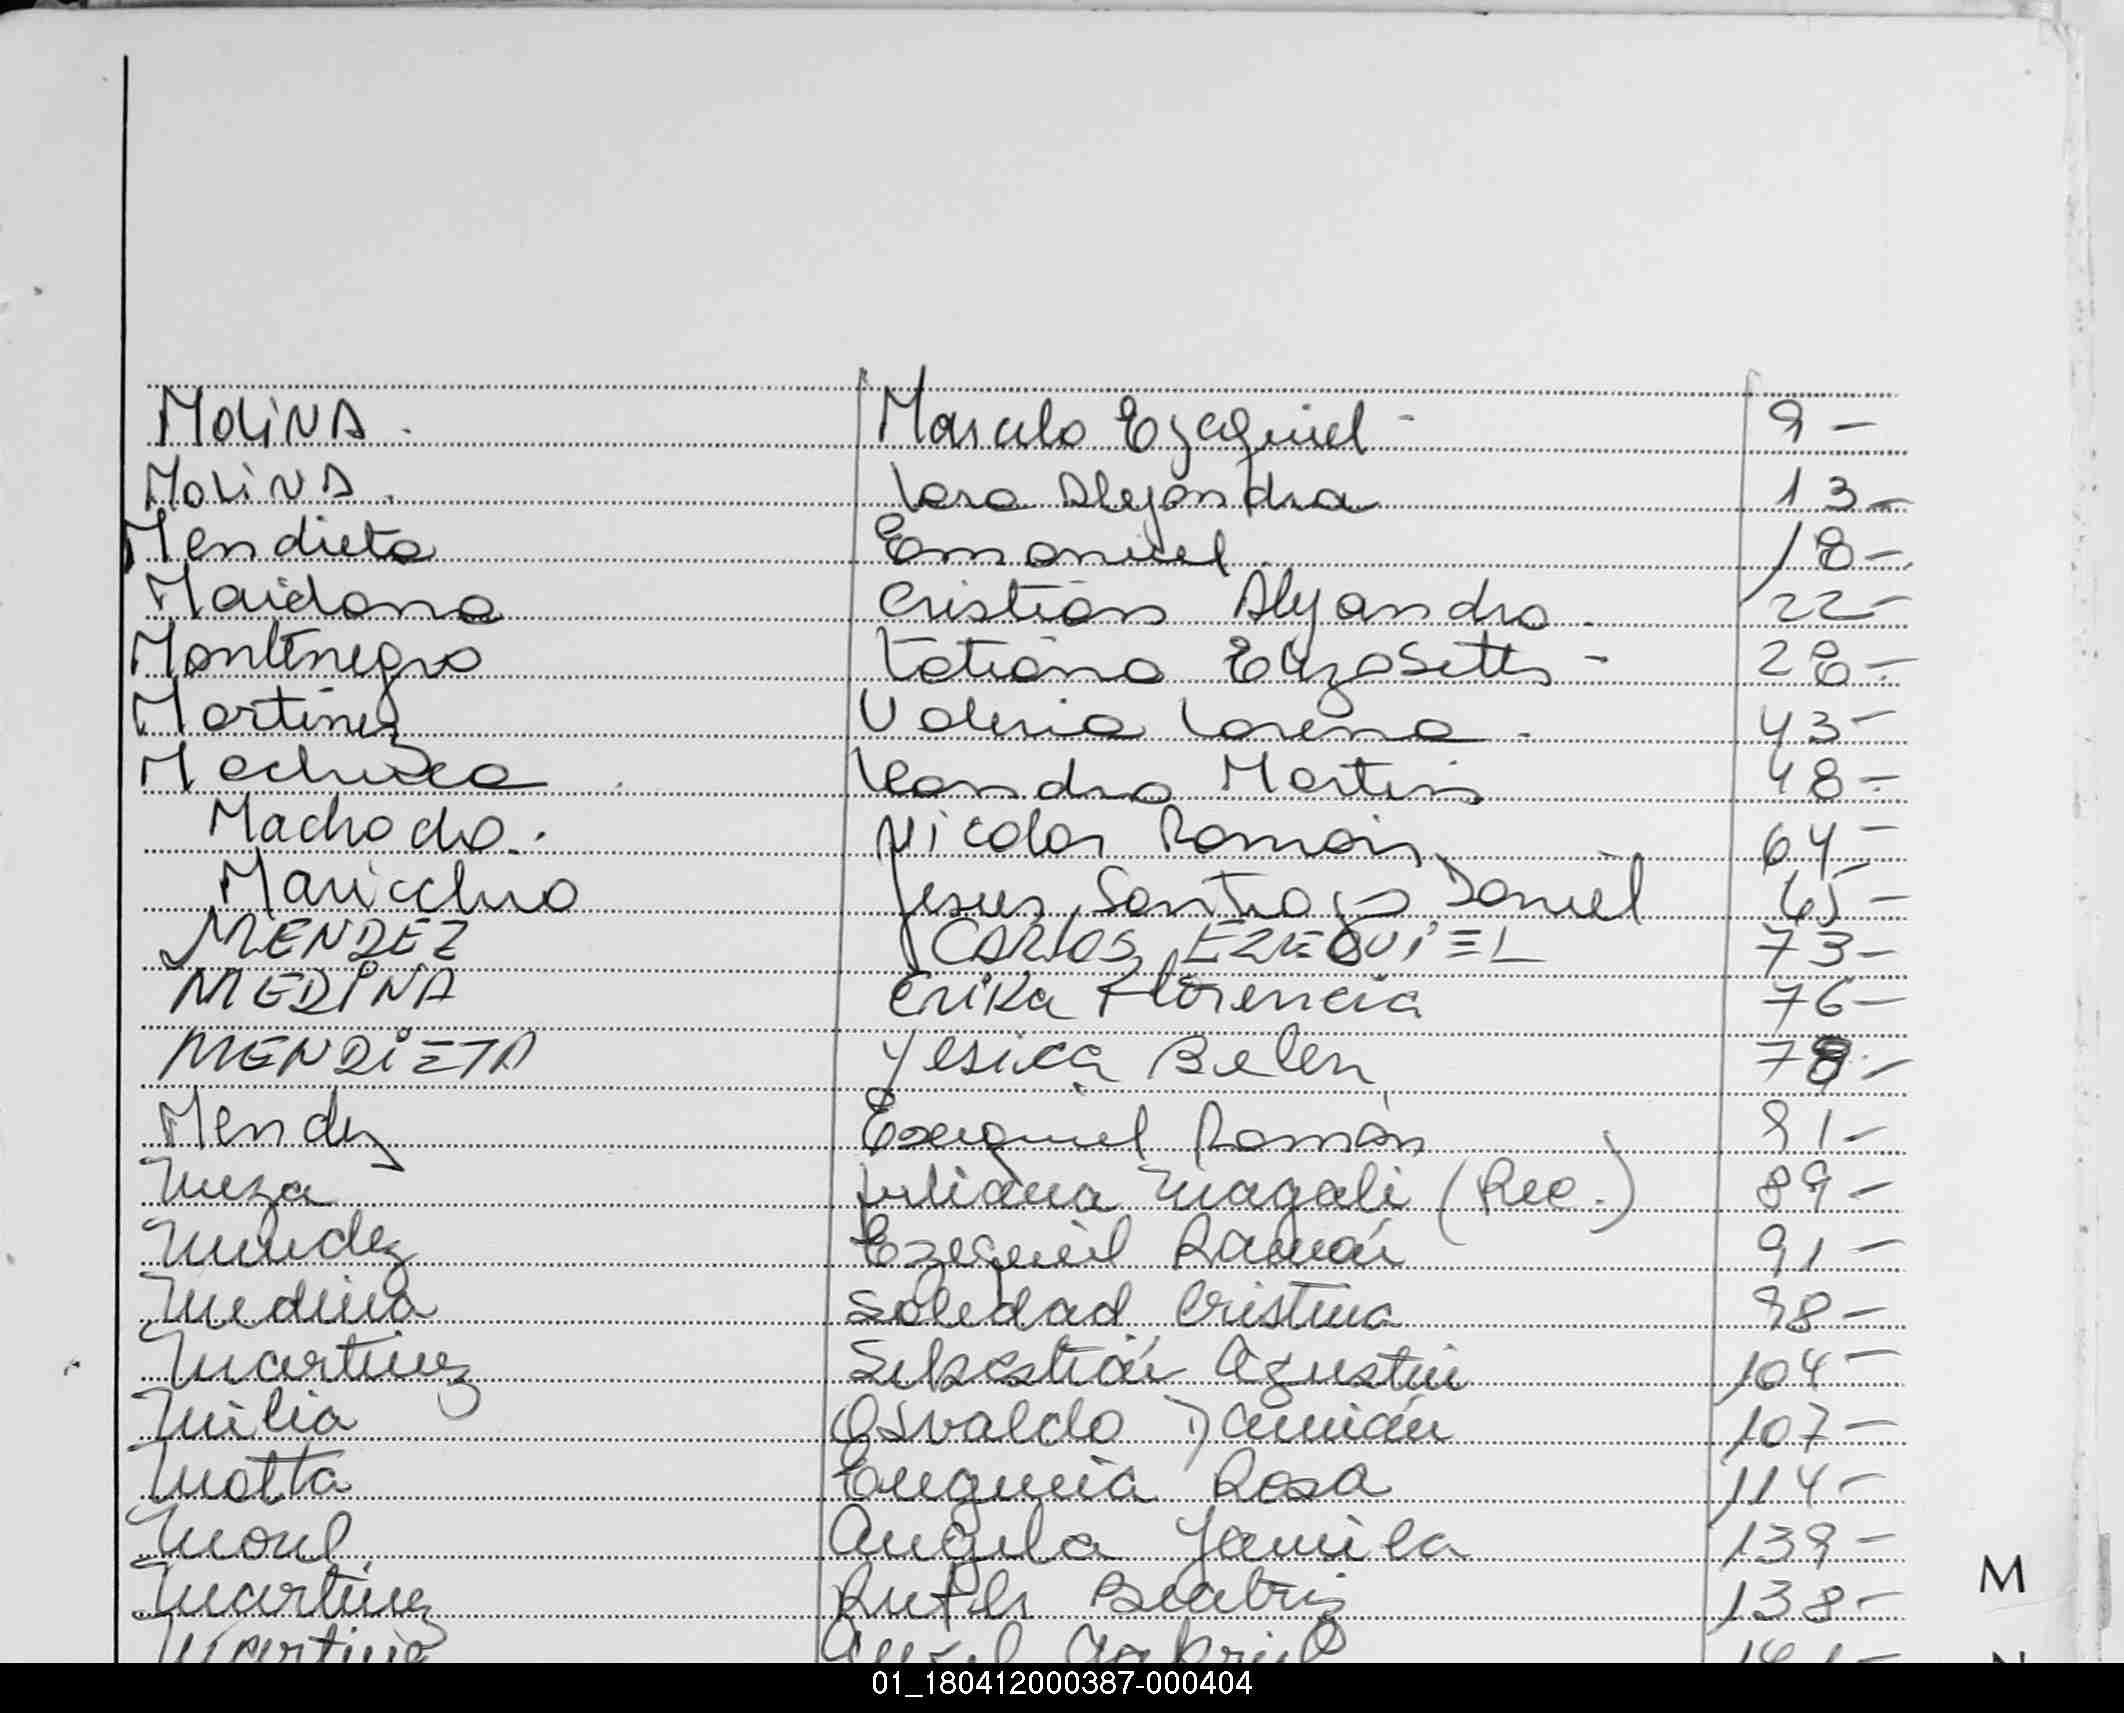 MOLiNA. Marcelo Ezequiel - 9 -
MOLiNA. Lara Alejandra 13 -
Mendieta Emanuel. 18 -
Maidana Cristian Alejandro. 22 -
Montenegro Tatiana Elizabeth - 28 -
Martinez Valeria Lorena. 43 -
Machuca Leandro Martin 48 -
Machado. Nicolas Roman 64 -
Maricchio Jesus Santiago Daniel 65 -
MENDEZ CARLOS EZEQUiEL 73 -
MEDiNA Erika Florencia 76 -
MENDiETA Yesica Belen 78 -
Mendez Exequiel Román 91 -
Meza Juliana Magali (Rec.) 89 -
Mendez Ezequiel Ramón 91 -
Medina Soledad Cristina 98 -
Martinez Sebastián Agustin 104 -
Milia Osvaldo Damián 107 -
Motta Eugenia Rosa 114 -
Morel. Angela Yamila 139 -
M
Martinez Ruth Beatriz 138 -
Martinez Gabriel
01_180412000387-000404